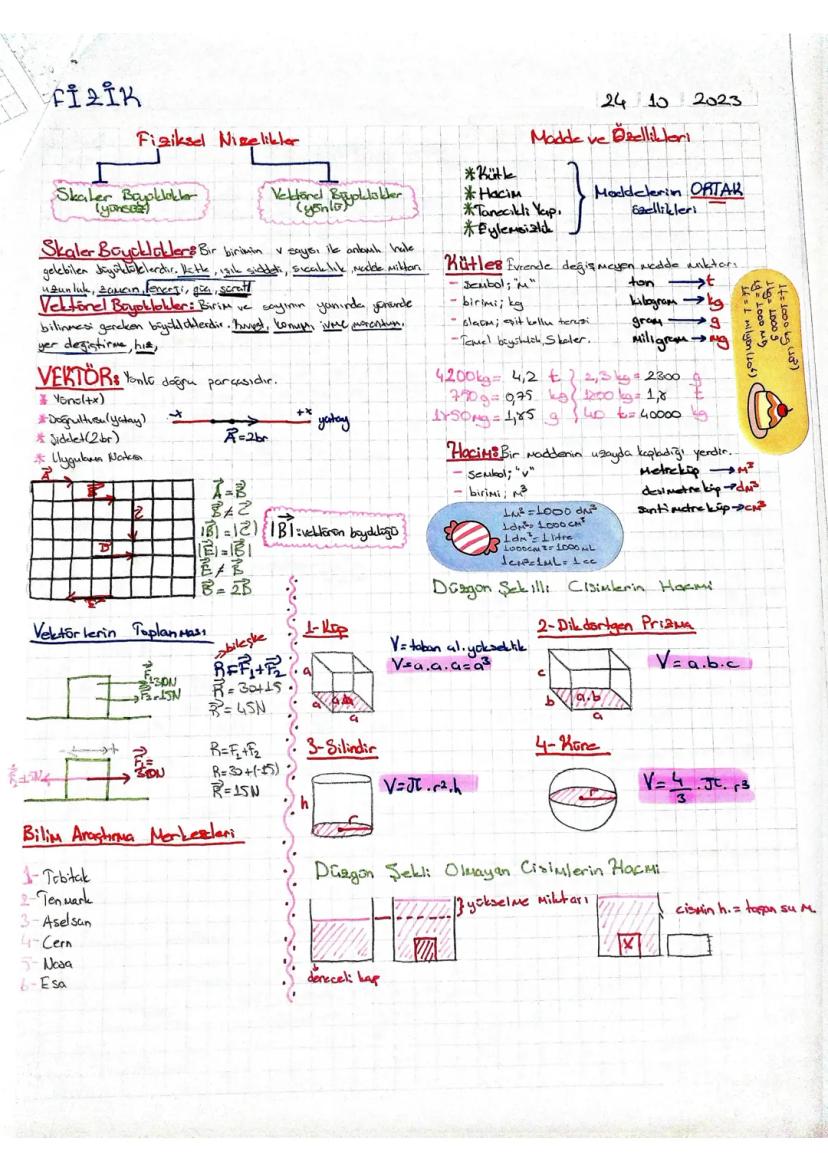 FİZİK
24 10 2023
Fiziksel Nicelikler
Skaler Büyüklükler
(yönsüz)
Vektörel Büyüklükler
(yönlü)
Skaler Büyüklükler: Bir birimin v sayısı ile anlamlı hale
gelebilen büyüklüklerdir. Kütle, ışık şiddeti, sıcaklık, madde miktarı
uzunluk, zaman, enerji, güç, sürat
Vektörel Büyüklükler: Birim ve sayının yanında yönünde
bilinmesi gereken büyüklüklerdir. kuvvet, konum, ivme, momentum,
yer değiştirme, hız,
VEKTÖR: Yönlü doğru parçasıdır.
* Yönü(+x)
* Doğrultusu(yatay)
* Şiddet(2br)
* Uygulama Noktası
-x +x yatay
A=2br
A
B
C
D
E
A=B
B≠C
|B|=|C|
|E|=|B|
E≠B
D=2B
|B|: vektörün büyüklüğü
Vektörlerin Toplanması
F1=30N
F2=15N
→bileşke
R=F1+F2
R=30+15
R=45N
- +
F1=
30N
R=F1+F2
R=30+(-15)
R=15N
Bilim Araştırma Merkezleri
1- Tübitak
2- Tenmark
3- Aselsan
4- Cern
5- Nasa
6- Esa
Madde ve Özellikleri
* Kütle
* Hacim
* Tanecikli Yapı
* Eylemsizlik
Maddelerin ORTAK
özellikleri
Kütle: Evrende değişmeyen madde miktarı
- sembol; "m"
- birimi; kg
- ölçüm; eşit kollu terazi
- Temel büyüklük, Skaler.
ton → t
kilogram → kg
gram → g
miligram → mg
1t=1000 kg (10³)
1kg=1000 g
1g=1000 mg
1t=1 milyon (10⁶)
4200kg= 4,2 t } 2,3 kg= 2300 g
750g= 0,75 kg } 1800 kg= 1,8 t
1850mg= 1,85 g } 40 t= 40000 kg
Hacim: Bir maddenin uzayda kapladığı yerdir.
- sembol; "v"
- birimi; m³
Metreküp → m³
desimetreküp → dm³
santimetreküp → cm³
1m³=1000 dm³
1dm³=1000cm³
1dm³=1litre
1000cm³=1000mL
1cm³=1mL=1cc
Düzgün Şekilli Cisimlerin Hacmi
1- Küp
a
a
a
V=taban al.yükseklik
V=a.a.a=a³
2- Dikdörtgen Prizma
c
b
a.b
a
V=a.b.c
3- Silindir
h
r
V=π.r².h
4- Küre
r
V=4/3.π.r³
Düzgün Şekli Olmayan Cisimlerin Hacmi
} yükselme miktarı
dereceli kap
x
cismin h.= taşan su m.